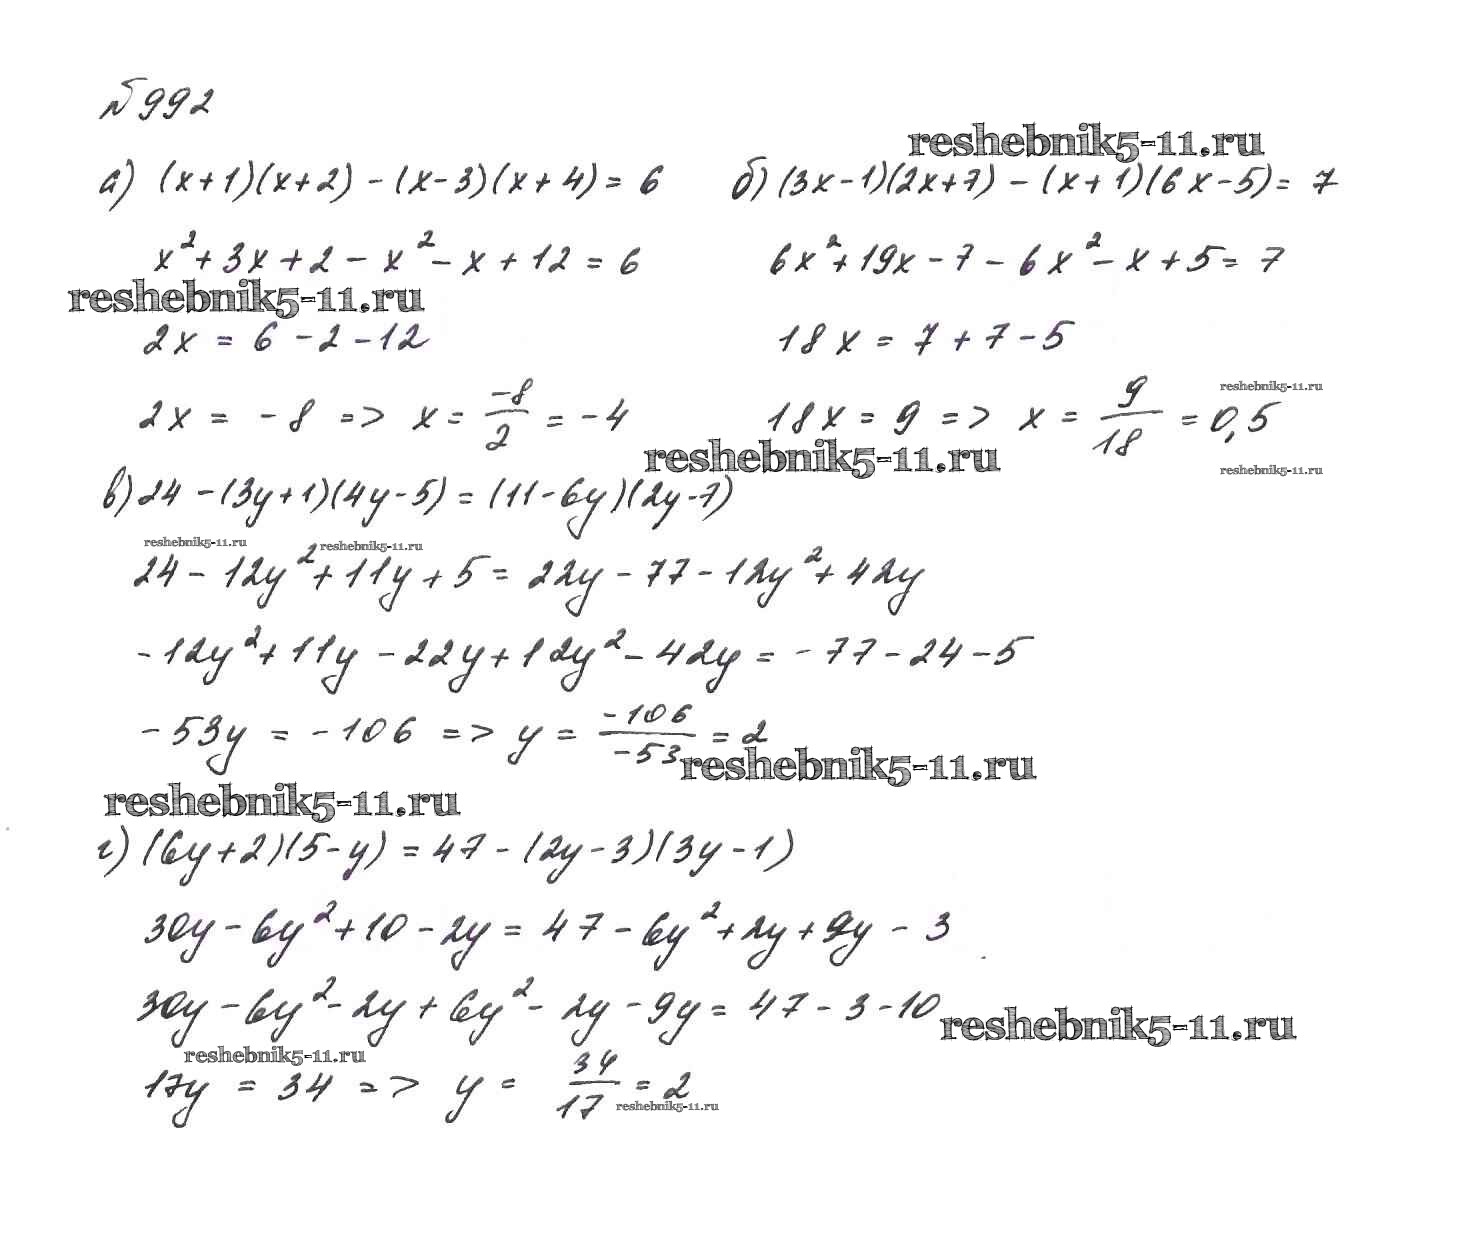 №992
reshebnik5-11.ru
а) (x+1)(x+2) - (x-3)(x+4) = 6
б) (3x-1)(2x+7) - (x+1)(6x-5) = 7
x² + 3x + 2 - x² - x + 12 = 6
6x² + 19x - 7 - 6x² - x + 5 = 7
reshebnik5-11.ru
2x = 6 - 2 - 12
18x = 7 + 7 - 5
2x = -8 => x = -8/2 = -4
reshebnik5-11.ru
18x = 9 => x = 9/18 = 0,5
reshebnik5-11.ru
reshebnik5-11.ru
в) 24 - (3y+1)(4y-5) = (11-6y)(2y-7)
reshebnik5-11.ru
reshebnik5-11.ru
24 - 12y² + 11y + 5 = 22y - 77 - 12y² + 42y
-12y² + 11y - 22y + 12y² - 42y = -77 - 24 - 5
-53y = -106 => y = -106/-53 = 2
reshebnik5-11.ru
reshebnik5-11.ru
г) (6y+2)(5-y) = 47 - (2y-3)(3y-1)
30y - 6y² + 10 - 2y = 47 - 6y² + 2y + 9y - 3
30y - 6y² - 2y + 6y² - 2y - 9y = 47 - 3 - 10
reshebnik5-11.ru
reshebnik5-11.ru
17y = 34 => y = 34/17 = 2
reshebnik5-11.ru